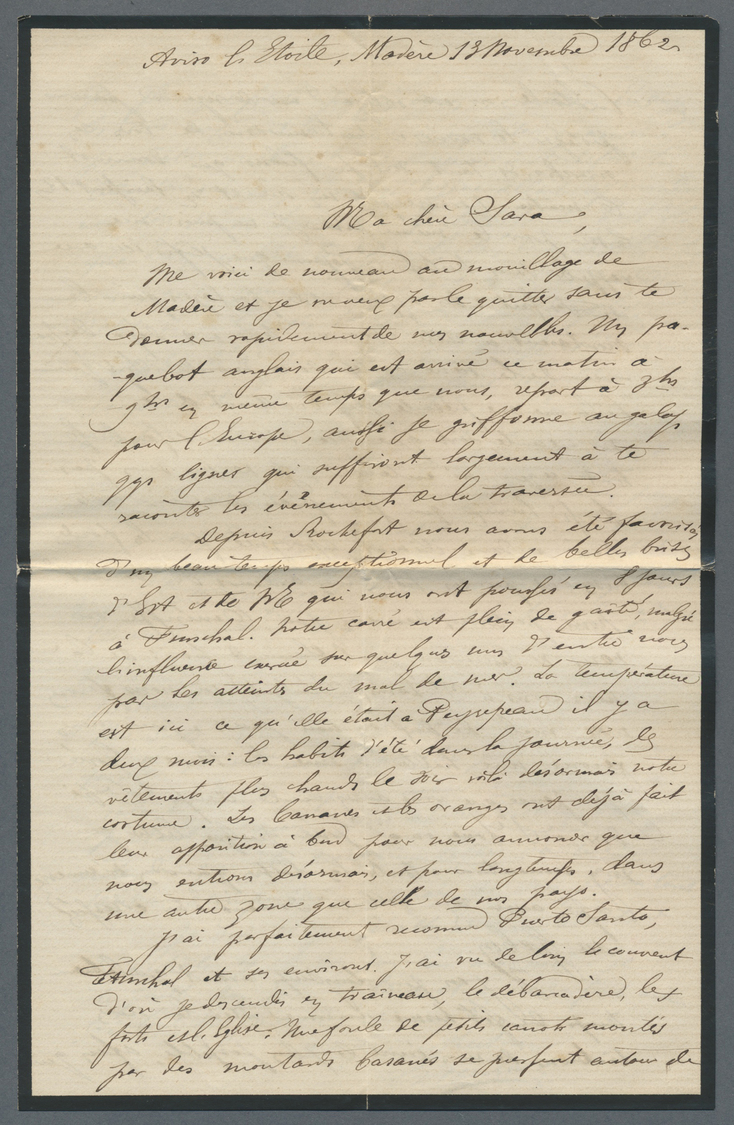 Aviso l'Etoile, Madère 13 Novembre 1862
Ma chère Sara,
Me voici de nouveau au mouillage de
Madère et je ne veux pas le quitter sans te
donner rapidement de mes nouvelles. Un pa-
-quebot anglais qui est arrivé ce matin à
9hrs en même temps que nous, repart à 3hrs
pour l'Europe, aussi je griffonne au galop
qqs lignes qui suffiront largement à te
raconter les événements de la traversée.
Depuis Rochefort nous avons été favorisés
d'un beau temps exceptionnel et de belles brises
d'Est et de NE qui nous ont poussés en 8 jours
à Funschal. Notre carré est plein de gaité, malgré
l'influence exercée sur quelques uns d'entre nous
par les atteintes du mal de mer. La température
est ici ce qu'elle était à il y a
deux mois : les habits d'été dans la journée, les
vêtements plus chauds le soir voilà désormais notre
costume. Les bananes et les oranges ont déjà fait
leur apparition à bord pour nous annoncer que
nous entrions désormais, et pour longtemps, dans
une autre zone que celle de nos pays.
J'ai parfaitement reconnu Puerto Santo,
Funschal et ses environs. J'ai vu de loin le couvent
d'où je descendis en traineau, le débarcadère, les
forts et l'Eglise. Une foule de petits canots montés
par des moutards basanés se pressent autour de